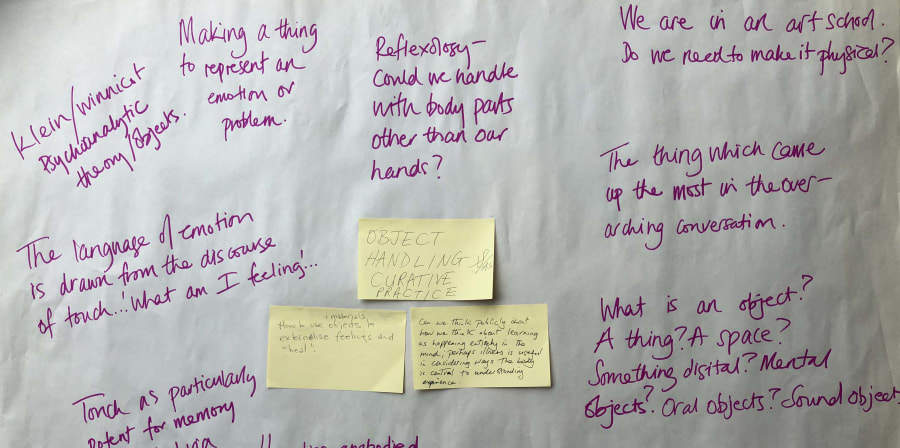 Making a thing
to represent an
emotion or
problem.
Klein/Winnicot
Psychoanalytic
theory/objects.
Reflexology–
Could we handle
with body parts
other than our
hands?
We are in an art school.
Do we need to make it physical?
The thing which came
up the most in the over–
arching conversation.
The language of emotion
is drawn from the discourse
of touch. 'What am I feeling'...
OBJECT
HANDLING
CURATIVE
PRACTICE
+ materials
How to use objects to
externalise feelings and
"heal".
Can we think publicly about
how we think about learning
as happening entirely in the
mind, perhaps illness is useful
in considering ways the body
is central to understanding
experience.
What is an object?
A thing? A space?
Something digital? Mental
objects? Oral objects? Sound object
Touch as particularly
potent for memory
embodied